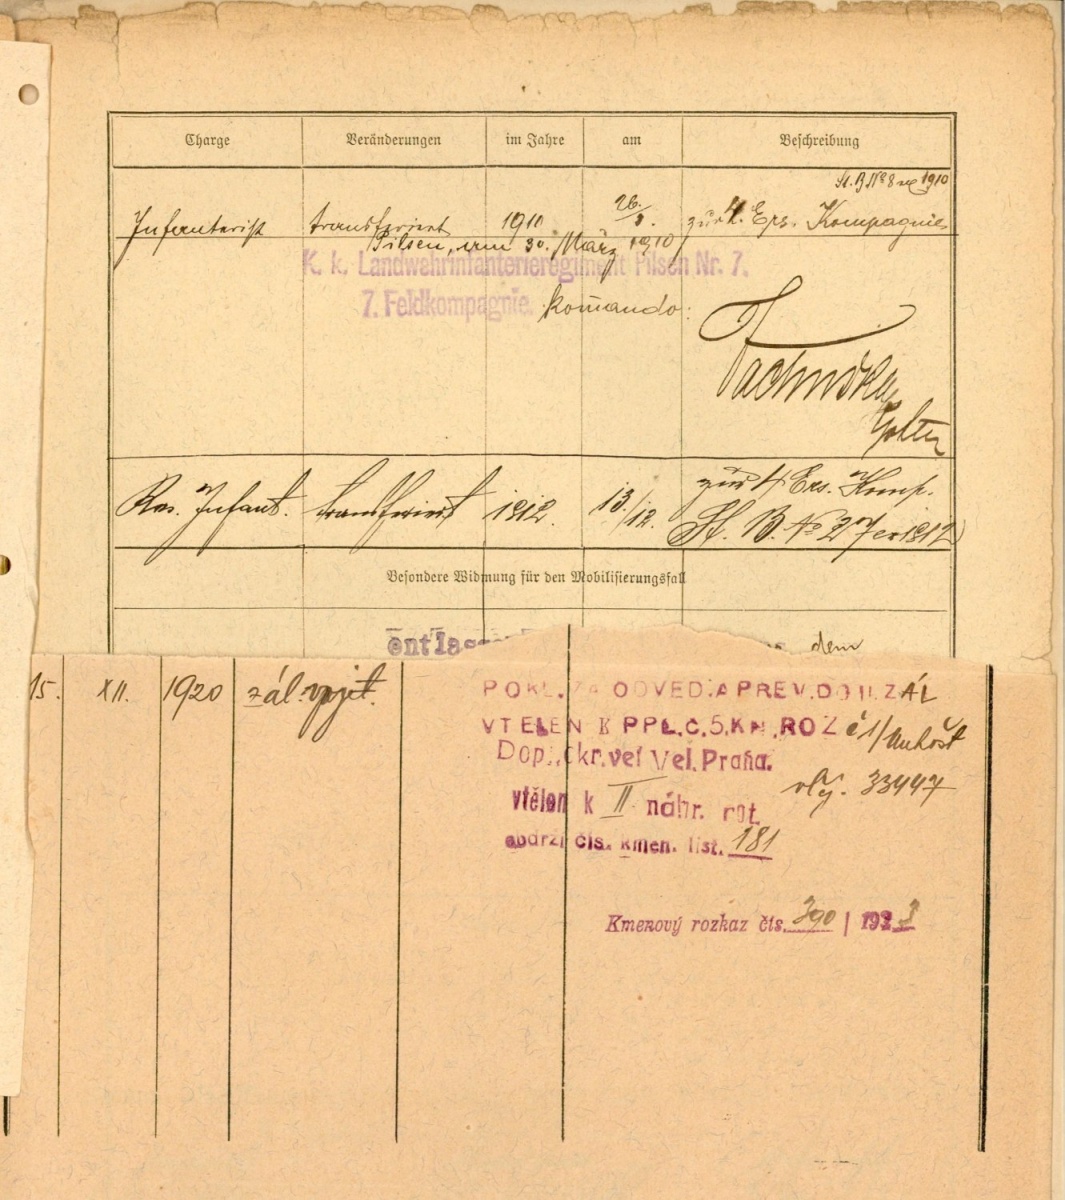 Charge Veränderungen im Jahre am Beschreibung
St. B. Nº 8 1910
Infanterist transferiert 1910 26./3. zur 4. Ers. Kompagnie
Pilsen, am 30. März 1910
K. k. Landwehrinfanterieregiment Pilsen Nr. 7.
7. Feldkompagnie. Komando:
Res. Infant. transferiert 1912. 13./12. zur 4 Ers. Komp.
St. B. No 207 ex 1912
Besondere Widmung für den Mobilisierungsfall
dem
15. XII. 1920 zál. vojet. POKL. ZA ODVED. A PREV. DO II. ZÁL
VTELEN K PPL. C. 5. KM. ROZ č 1/
Dop. okr. vel Vel. Praha.
33447
vtělen k II náhr. rot.
obdržel čís. kmen. list. 181
Kmenový rozkaz čís. 390 / 192